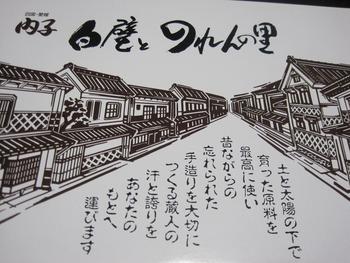 四国・愛媛
内子
白壁と のれんの里
土と太陽の下で
育った原料を
最高に使い
昔ながらの
忘れられた
手造りを大切に
つくる蔵人の
汗と誇りを
あなたの
もとへ
運びます